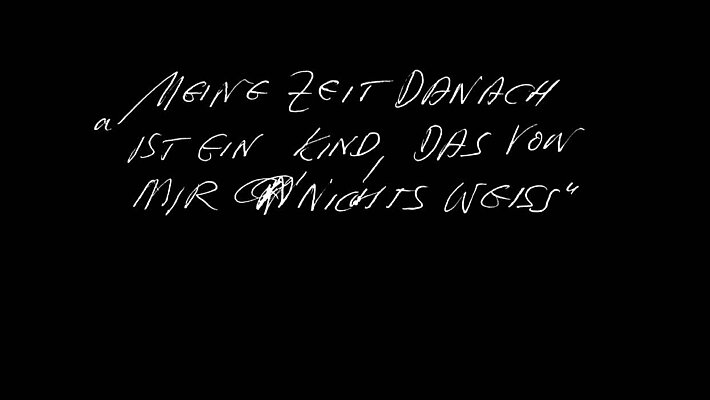 „MEINE ZEIT DANACH
IST EIN KIND, DAS VON
MIR NICHTS WEISS“